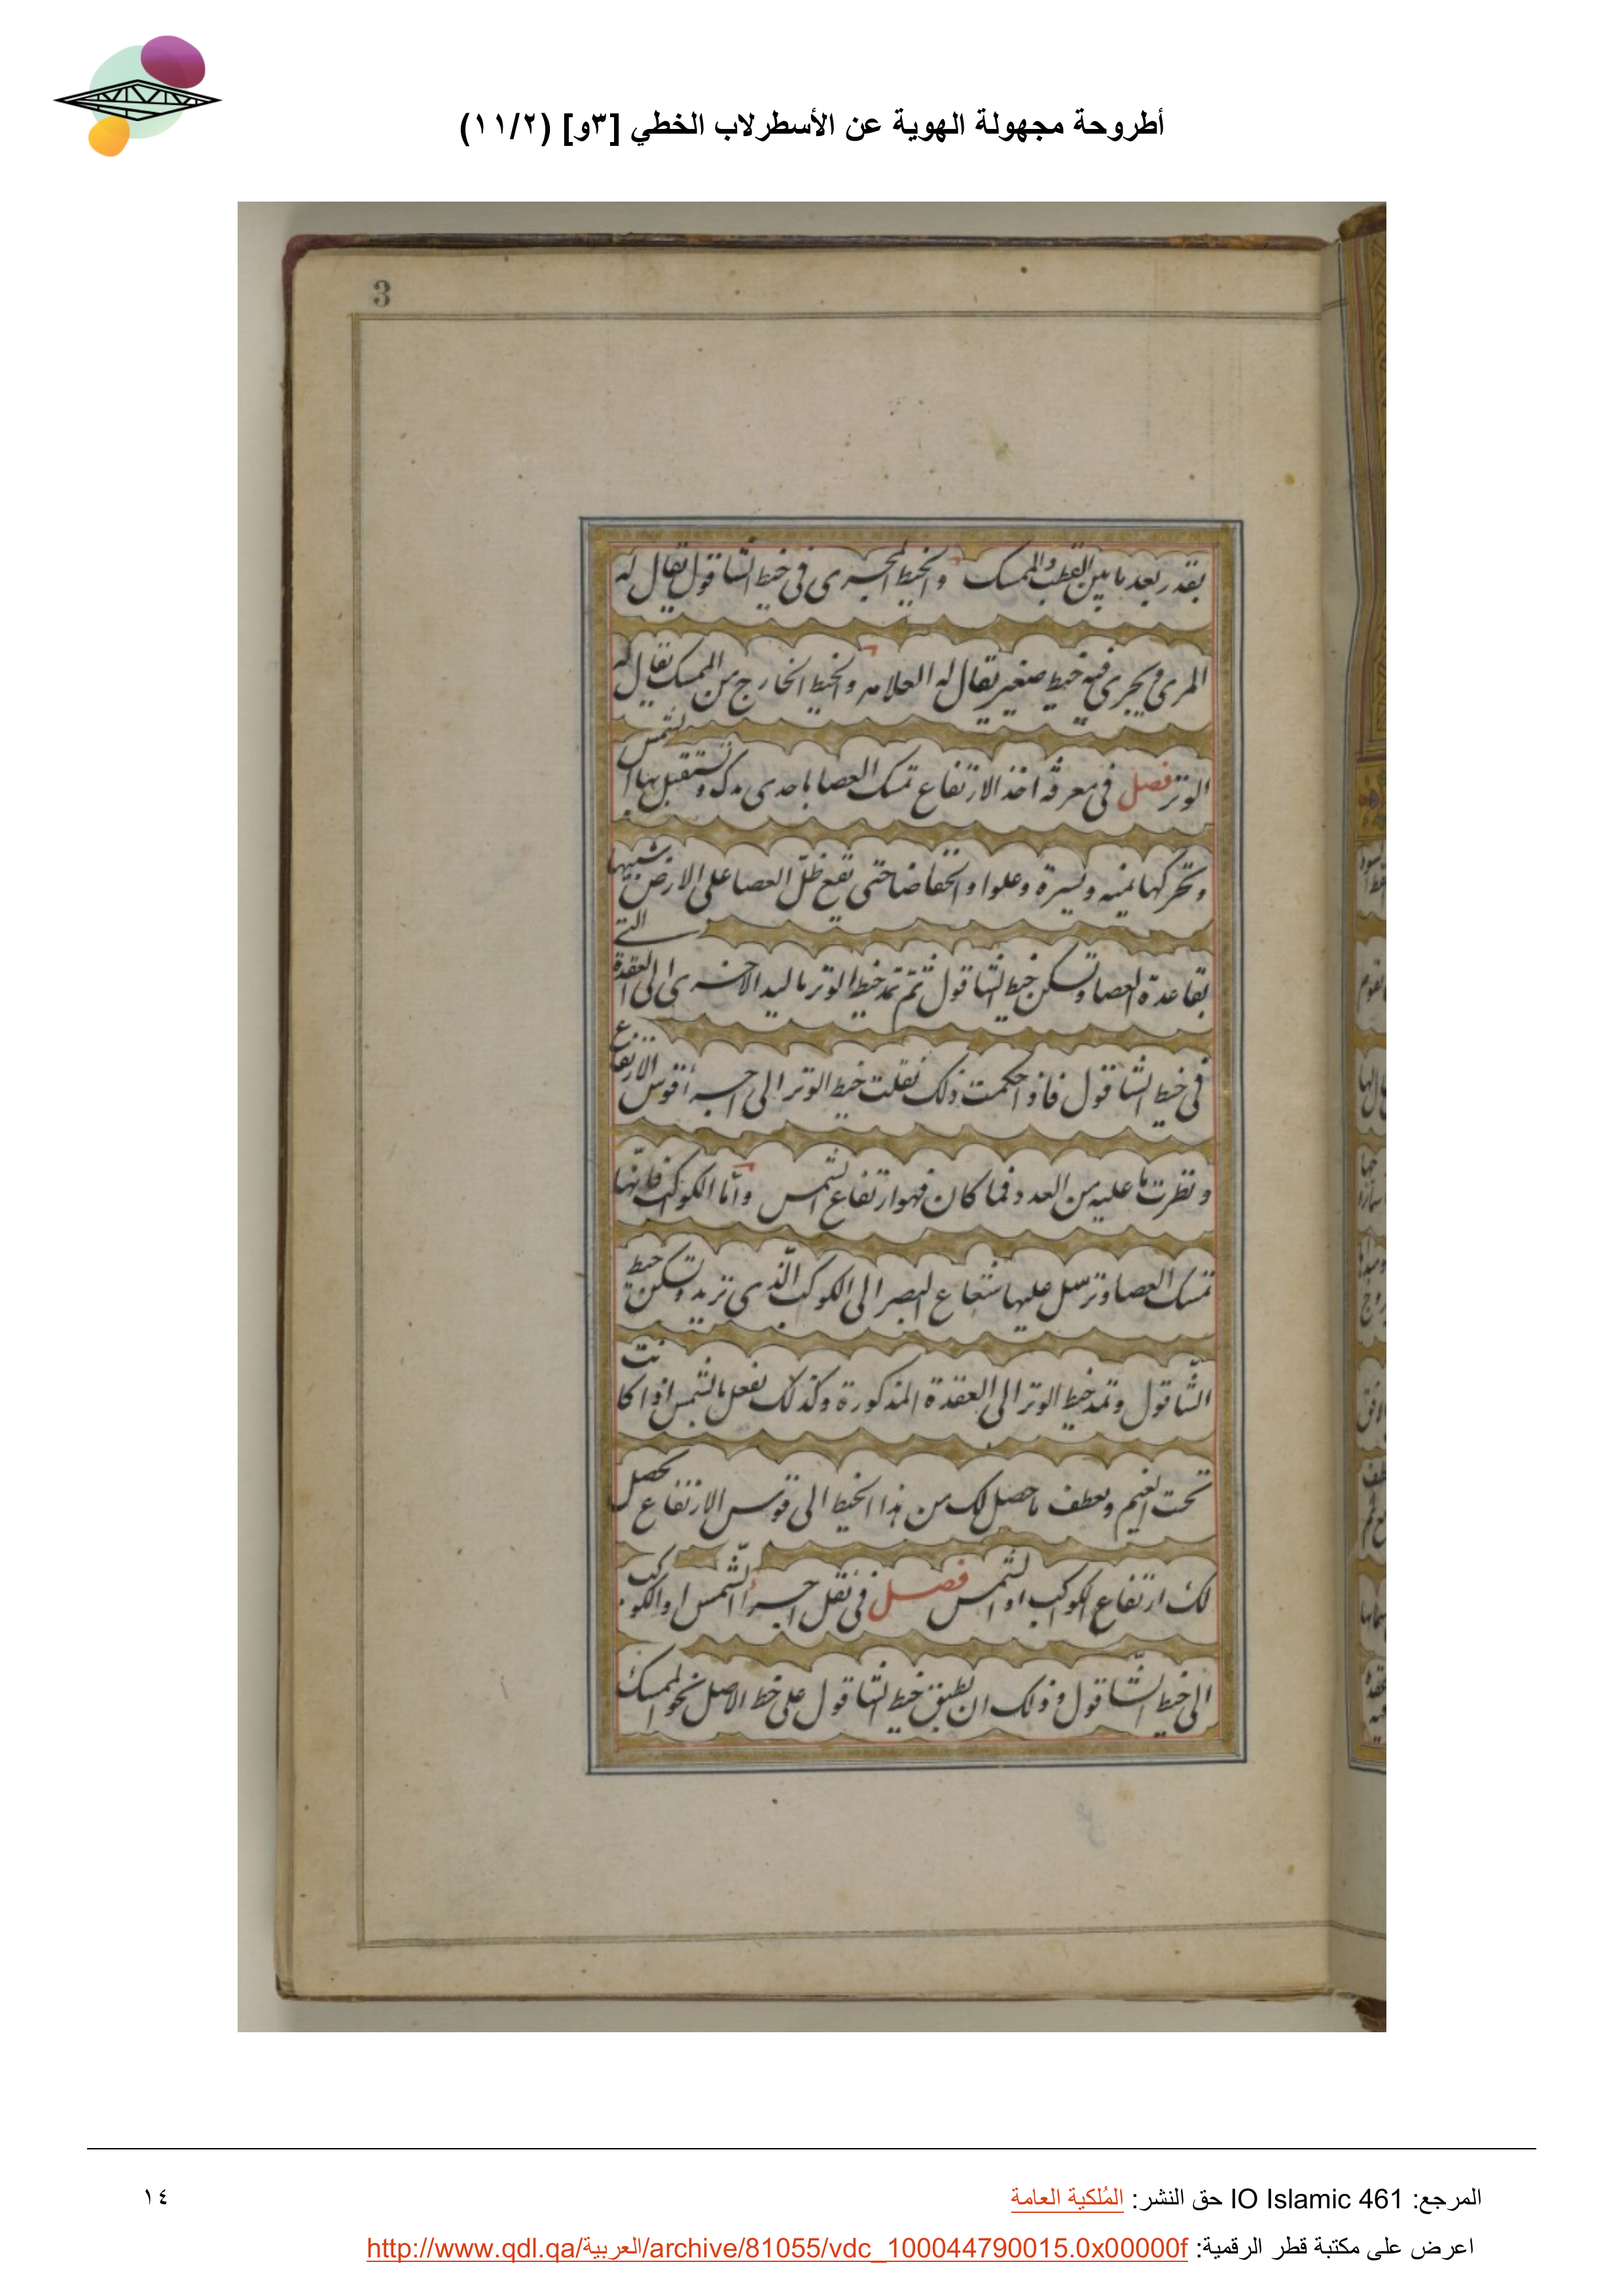 أطروحة مجهولة الهوية عن الأسطرلاب الخطي [٣و] (١١/٢)
3
بقدر بعد ما بين القطب والممسك والخيط المجرى فى خيط الشاقول يقال له
المرى ويجرى فيه خيط صغير يقال له العلامه والخيط الخارج من الممسك يقال له
الوتر فصل فى معرفه اخذ الارتفاع تمسك العصا باحدى يدك وتستقبل بها الشمس
وتحركها يمنيه ويسيرة وعلوا وانخفاضا حتى يقع ظلّ العصا على الارض شبيها
بقاعدة العصا وتسكن خيط الشاقول ثمّ تمد خيط الوتر باليد الاخرى الى العقدة التى
فى خيط الشاقول فاذا حكمت ذلك نقلت خيط الوتر الى اجزأ قوس الارتفاع
ونظرت ما عليه من العدد فما كان فهو ارتفاع الشمس وأما الكوكب فانّها
تمسك العصا وترسل عليها شعاع البصر الى الكوكب الّذى تريد وتسكن خيط
الشّاقول وتمد خيط الوتر الى العقدة المذكورة وكذلك تفعل بالشمس اذا كانت
تحت الغيم وتعطف ما حصل لك من هذا الخيط الى قوس الارتفاع يحصل
لك ارتفاع الكوكب او الشمس فصل فى نقل اجزأ الشّمس او الكوكب
الى خيط الشّاقول وذلك ان تطبق خيط الشاقول على خط الاصل نحو الممسك
المرجع: IO Islamic 461 حق النشر: المُلكية العامة
١٤
اعرض على مكتبة قطر الرقمية: http://www.qdl.qa/العربية/archive/81055/vdc_100044790015.0x00000f